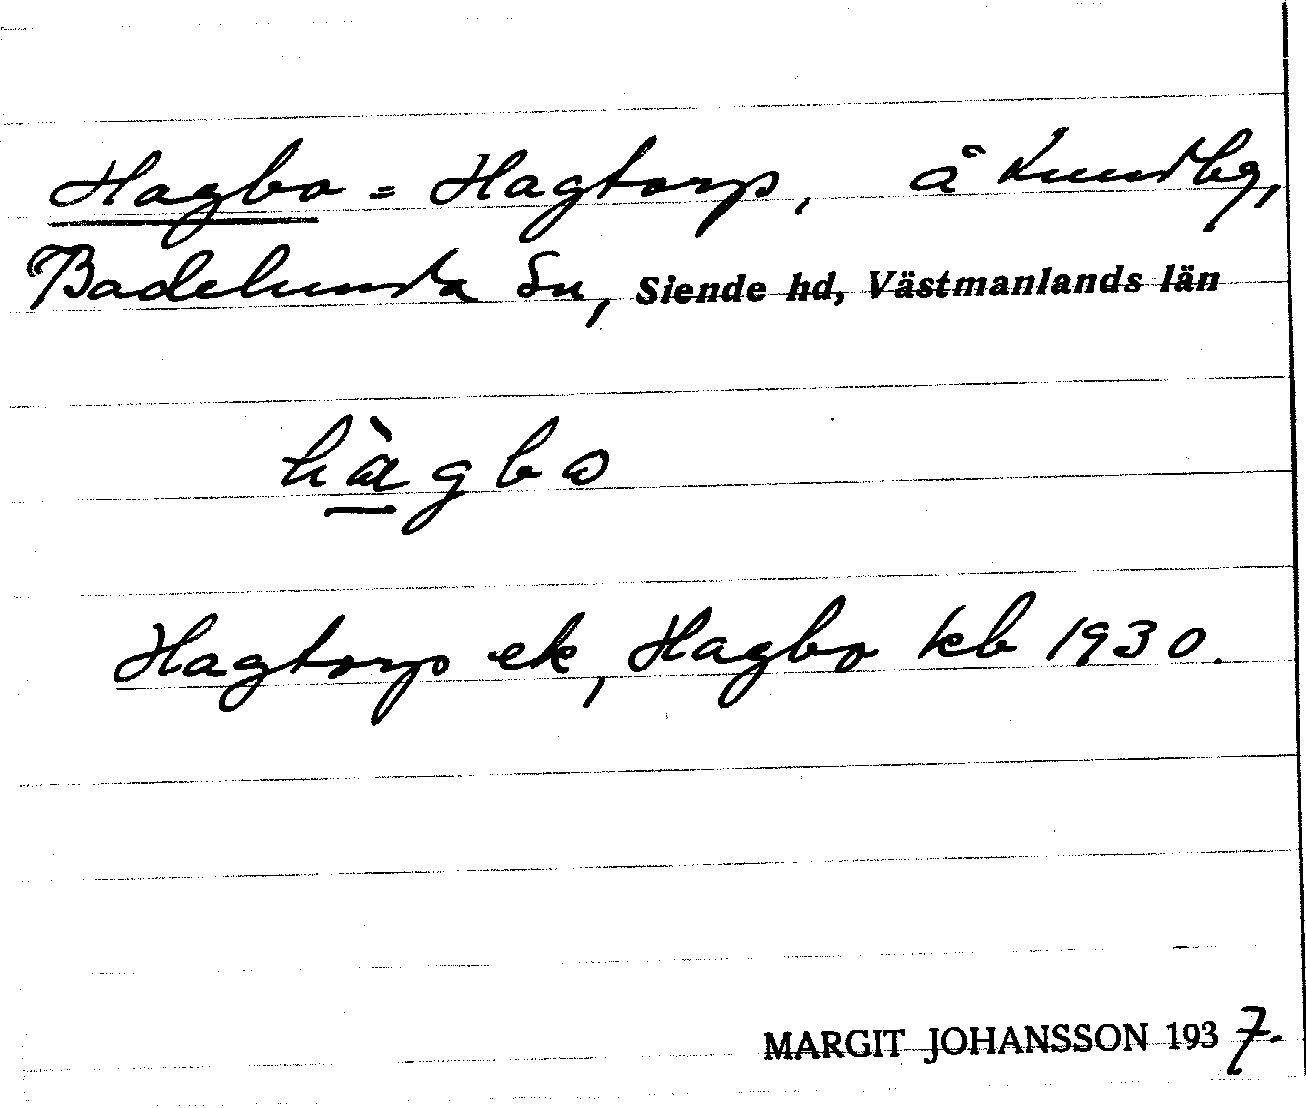 Hagbo = Hagtorp, å Kundbg,
Badelunda Sn, Siende hd, Västmanlands län
hàgbo
Hagtorp ek, Hagbo kb 1930.
MARGIT JOHANSSON 1937.